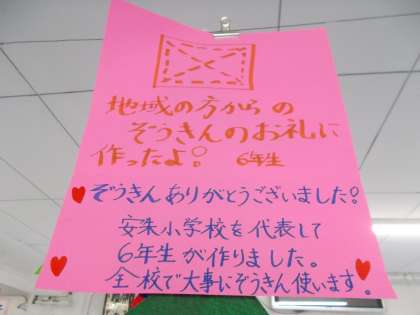 地域の方からの
ぞうきんのお礼に
作ったよ! 6年生
ぞうきんありがとうございました!
安朱小学校を代表して
6年生が作りました。
全校で大事にぞうきん使います。